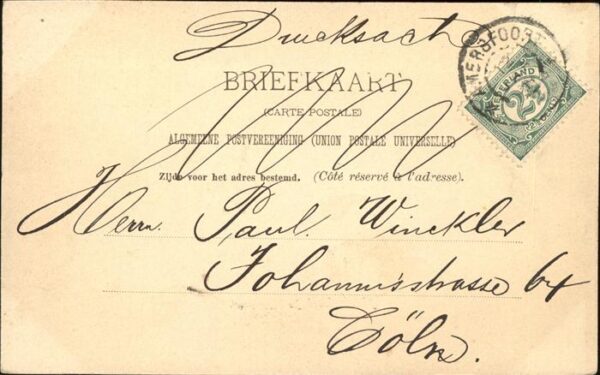 Drucksache
AMERSFOORT
BRIEFKAART
NEDERLAND
2½
CENT
(CARTE POSTALE)
ALGEMEENE POSTVEREENIGING (UNION POSTALE UNIVERSELLE)
Zijde voor het adres bestemd. (Côté réservé à l'adresse).
Herrn Paul Winckler
Johannisstrasse 64
Cöln.